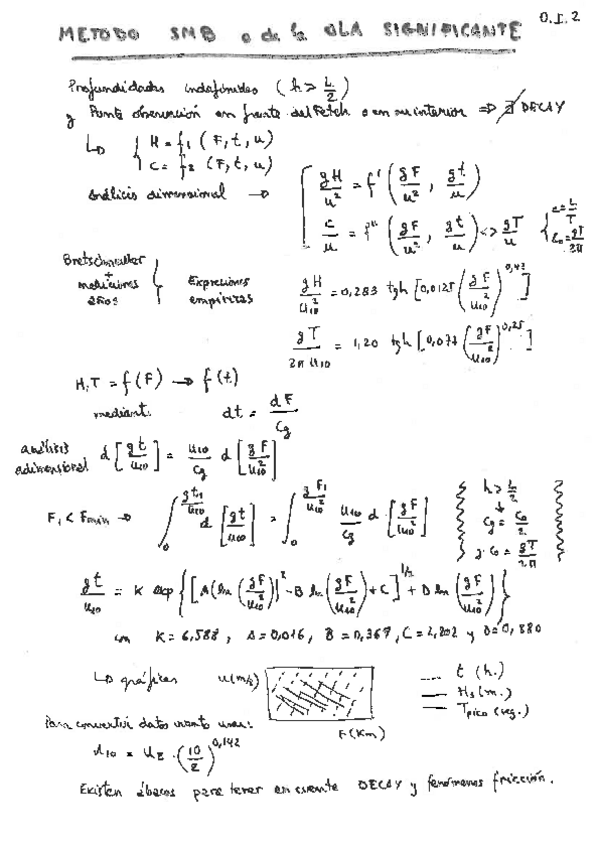 O.I.2
METODO SMB o de la OLA SIGNIFICANTE
Profundidades indefinidas (h > L/2)
y Punto observación en frente del Fetch o en su interior ⇒ ∄ DECAY
↳ { H = f₁ (F, t, u)
C = f₂ (F, t, u)
Análisis dimensional → { gH/u² = f' (gF/u², gt/u)
c/u = f'' (gF/u², gt/u) <> gT/u { c = L/T
C₀ = gT/2π
Bretschneider
+
mediciones
años
Expresiones
empíricas
gH/u₁₀² = 0,283 tgh [0,0125 (gF/u₁₀²)^0,42]
gT/2π u₁₀ = 1,20 tgh [0,077 (gF/u₁₀²)^0,25]
H,T = f(F) → f(t)
mediante dt = dF/Cg
análisis
adimensional d[gt/u₁₀] = u₁₀/Cg d[gF/u₁₀²]
F₁ < Fmin → ∫₀^(gt₁/u₁₀) d[gt/u₁₀] = ∫₀^(gF₁/u₁₀²) u₁₀/Cg d[gF/u₁₀²]
h > L/2
↓
Cg = C₀/2
y C₀ = gT/2π
gt/u₁₀ = K exp{[A(ln(gF/u₁₀²))² - B ln(gF/u₁₀²) + C]^1/2 + D ln(gF/u₁₀²)}
con K = 6,588, A = 0,016, B = 0,367, C = 2,202 y D = 0,880
↳ gráficas u(m/s)
F(Km)
t (h.)
Hs (m.)
Tpico (seg.)
Para convertir datos viento usar:
u₁₀ = uz · (10/z)^0,142
Existen ábacos para tener en cuenta DECAY y fenómenos fricción.